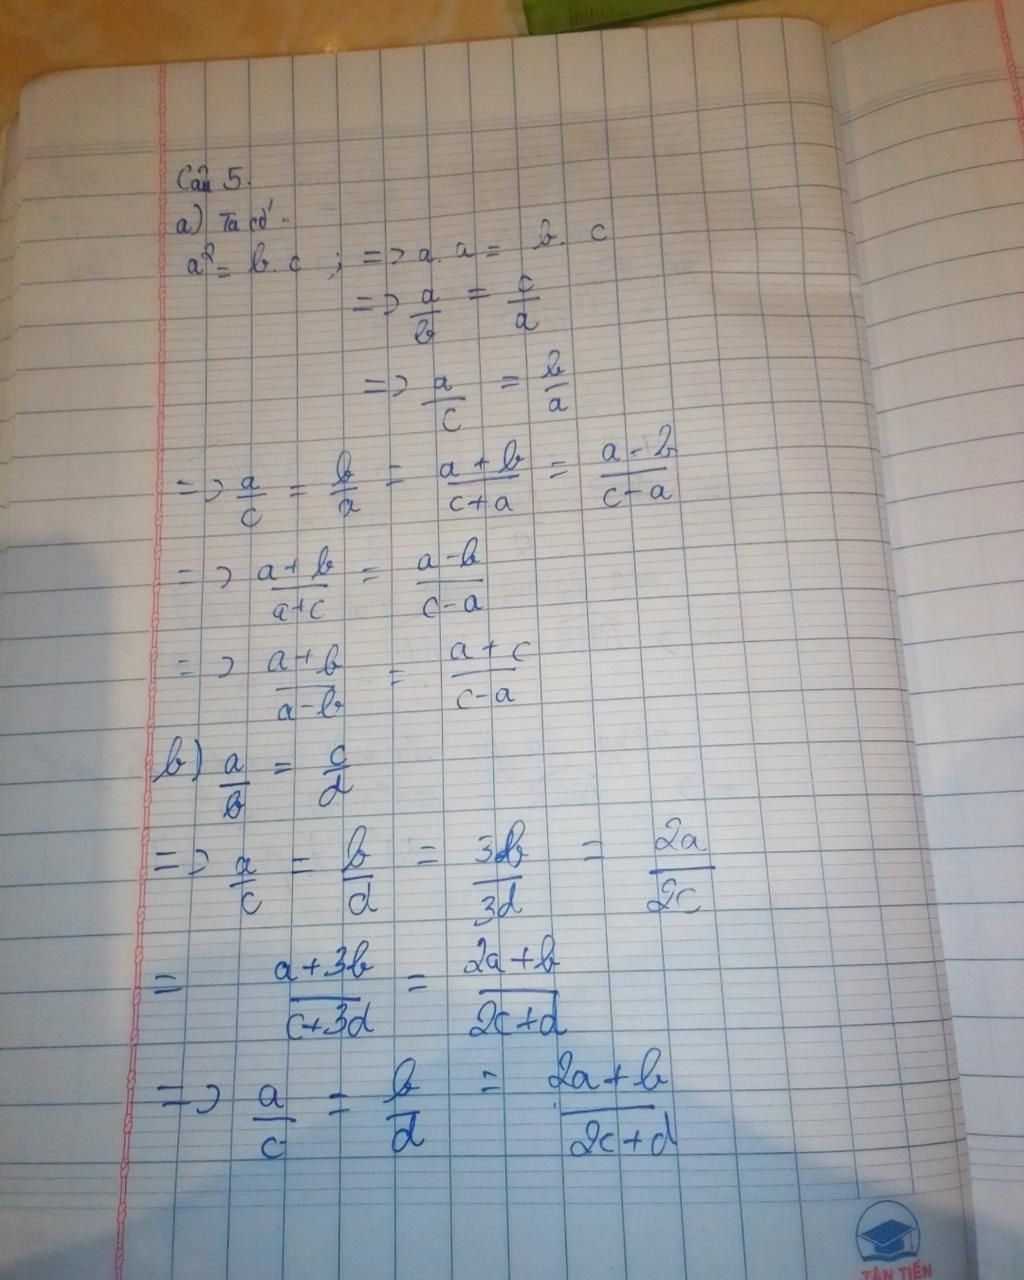 Câu 5.
a) Ta có:
a² = b.c ; => a.a = b.c
=> a/b = c/a
=> a/c = b/a
=> a/c = b/a = (a+b)/(c+a) = (a-b)/(c-a)
=> (a+b)/(a+c) = (a-b)/(c-a)
=> (a+b)/(a-b) = (a+c)/(c-a)
b) a/b = c/d
=> a/c = b/d = 3b/3d = 2a/2c
= (a+3b)/(c+3d) = (2a+b)/(2c+d)
=> a/c = b/d = (2a+b)/(2c+d)
TÂN TIẾN